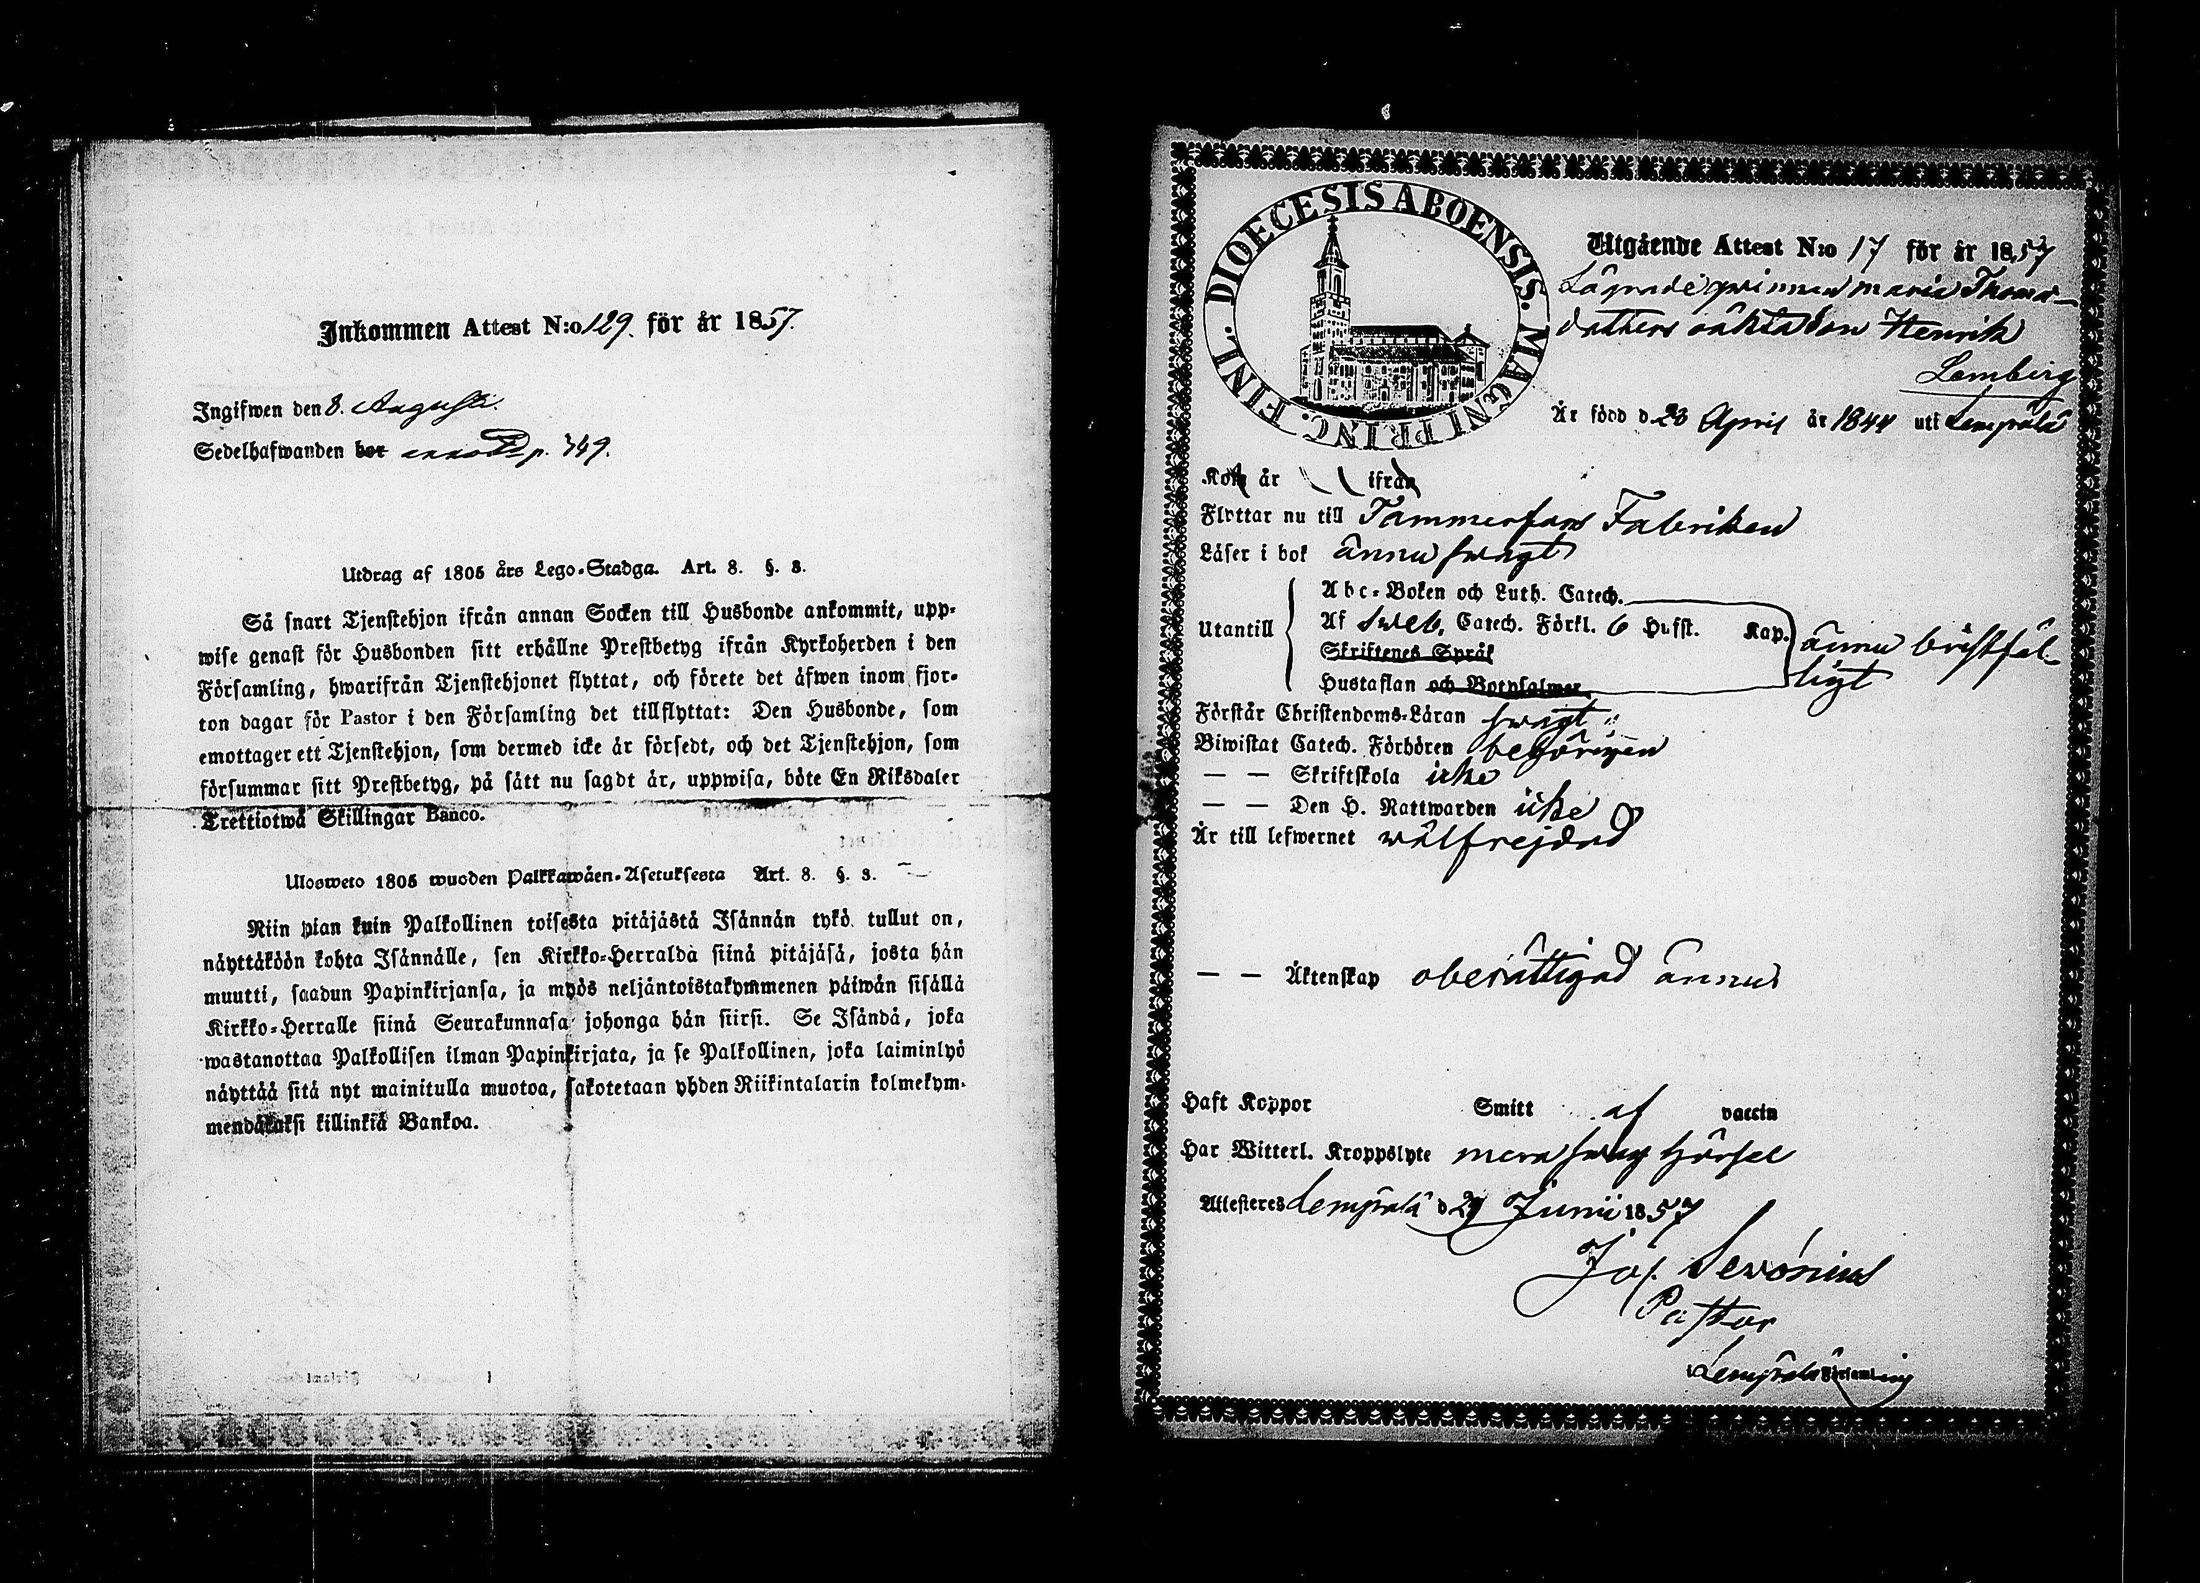 Inkommen Attest N:o 129. för år 1857.
Ingifwen den 8. Augusti.
Sedelhafwanden bor p. 349.
Utdrag af 1805 års Lego-Stadga. Art. 8. §. 3.
Så snart Tjenstehjon ifrån annan Socken till Husbonde ankommit, upp-
wise genast för Husbonden sitt erhållne Prestbetyg ifrån Kyrkoherden i den
Församling, hwarifrån Tjenstehjonet flyttat, och förete det äfwen inom fjor-
ton dagar för Pastor i den Församling det tillflyttat: Den Husbonde, som
emottager ett Tjenstehjon, som dermed icke är försedt, och det Tjenstehjon, som
försummar sitt Prestbetyg, på sätt nu sagdt är, uppwisa, böte En Riksdaler
Trettiotwå Skillingar Banco.
Ulosweto 1805 wuoden Palkkawäen-Asetuksesta Art. 8. §. 3.
Niin pian kuin Palkollinen toisesta pitäjästä Isännän tykö tullut on,
näyttäköön kohta Isännälle, sen Kirkko-Herralda siinä pitäjäsä, josta hän
muutti, saadun Papinkirjansa, ja myös neljäntoistakymmenen päiwän sisällä
Kirkko-Herralle siinä Seurakunnasa johonga hän siirsi. Se Isändä, joka
wastanottaa Palkollisen ilman Papinkirjata, ja se Palkollinen, joka laiminlyö
näyttää sitä nyt mainitulla muotoa, sakotetaan yhden Riikintalarin kolmekym-
mendäkaksi killinkiä Bankoa.
DIOECESIS ABOENSIS. MAGNI PRINC. FINL.
Utgående Attest N:o 17 för år 1857
Lägradeqwinnan Maria Thomas-
dotters oäkta Son Henrik
Lemberg
Är född d. 23 April år 1844 uti Lempälä
Kom år ifrån
Flyttar nu till Tammerfors Fabriken
Läser i bok ännu swagt
Utantill
Abc-Boken och Luth. Catech.
Af Sweb. Catech. Förkl. 6 Hufst. Kap.
Skriftenes Språk
Hustaflan och Botpsalmer
ännu bristfäl-
ligt
Förstår Christendoms-Läran swagt
Biwistat Catech. Förhören behörigen
— — Skriftskola icke
— — Den H. Nattwarden icke
Är till lefwernet wälfrejdad
— — Äktenskap oberättigad ännu
Haft Koppor Smitt af vaccin
Har Witterl. Kroppslyte mera swag hörsel
Attesteres Lempälä d. 29 Junii 1857
Jos. Sevonius
Pastor
Lempälä Församling